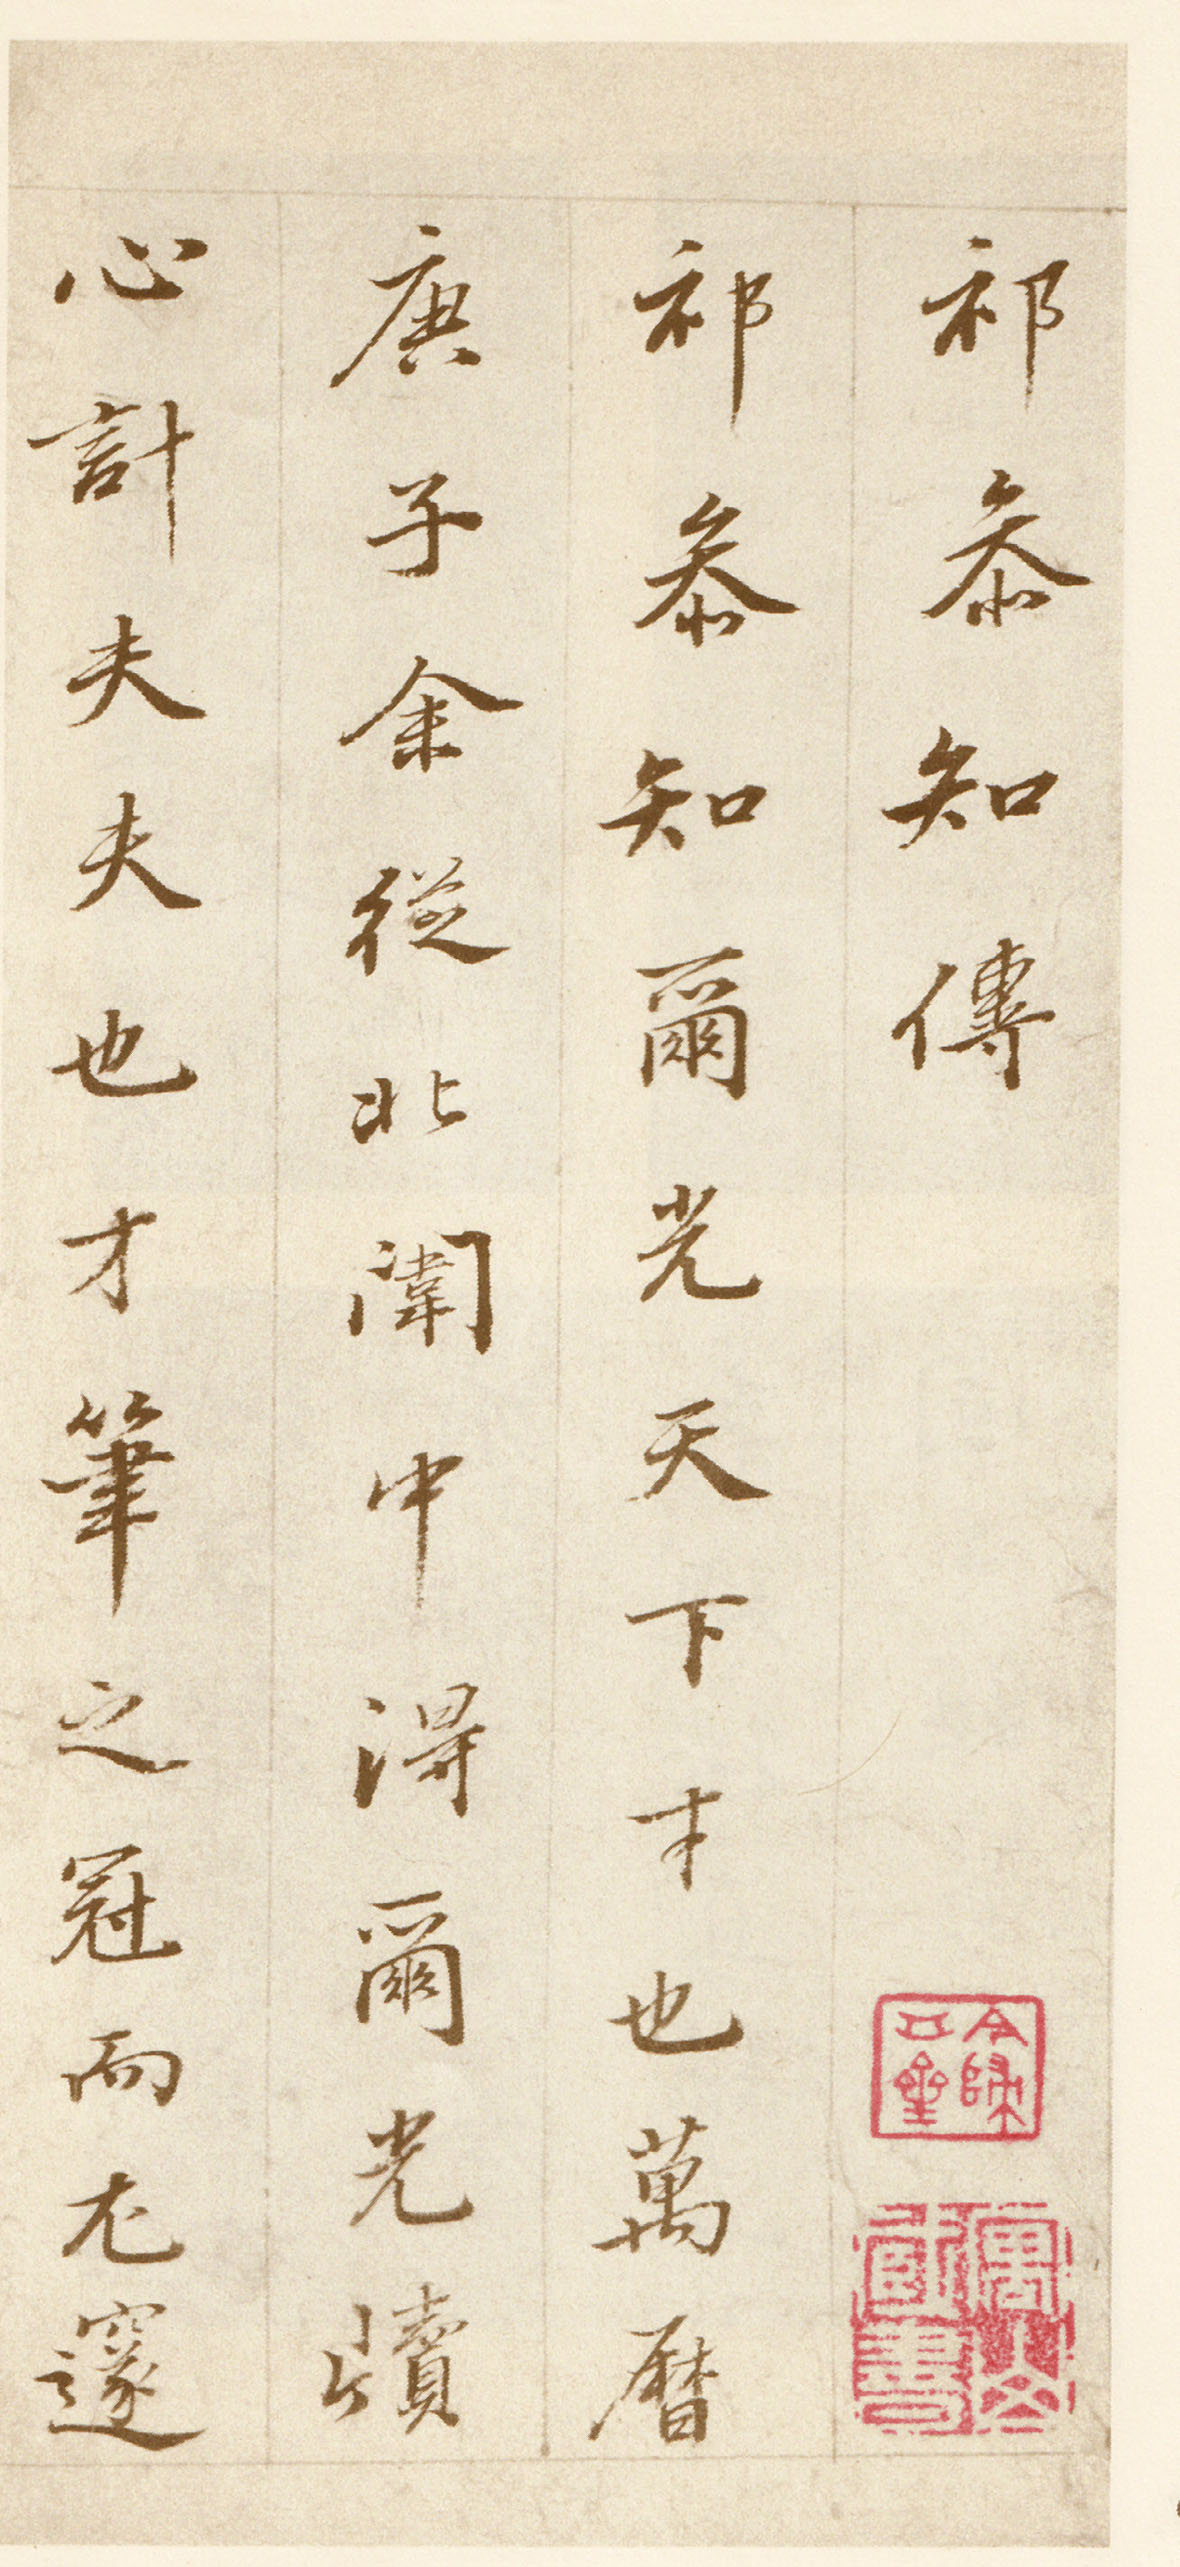 祁叅知傳
祁叅知爾光天下才也萬曆
庚子余從北闈中得爾光牘
心計夫夫也才筆之冠而尤邃